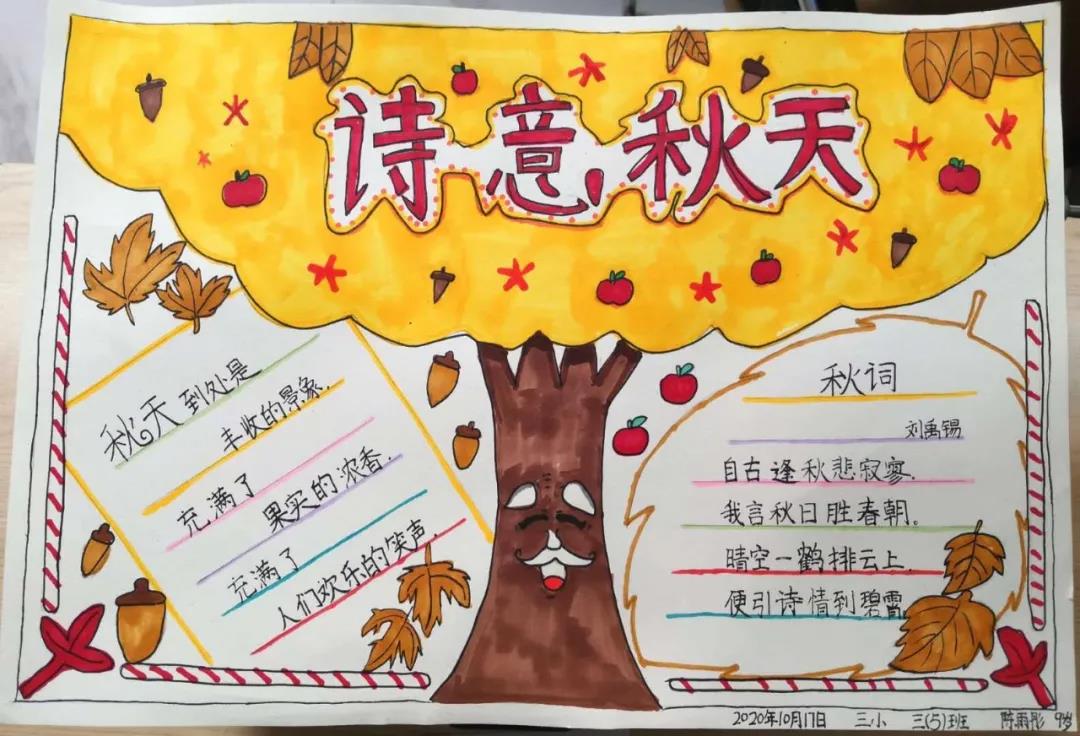 诗意秋天
秋天到处是
丰收的景象.
充满了
果实的浓香.
充满了
人们欢乐的笑声.
秋词
刘禹锡
自古逢秋悲寂寥.
我言秋日胜春朝。
晴空一鹤排云上.
便引诗情到碧霄.
2020年10月17日 三小 三(5)班 陈雨彤 9岁